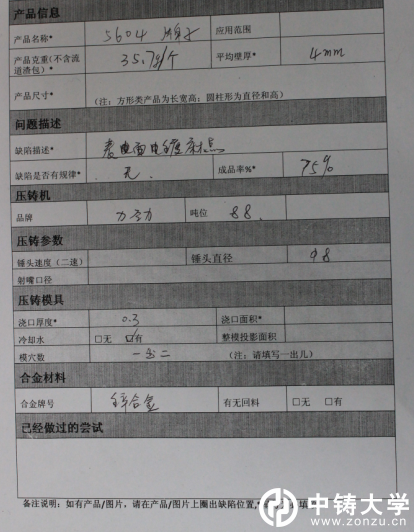 产品信息
产品名称* 5604 应用范围
产品克重(不含流道渣包)* 35.7g/个 平均壁厚* 4mm
产品尺寸* (注:方形类产品为长宽高;圆柱形为直径和高)
问题描述
缺陷描述* 表面电镀麻点
缺陷是否有规律* 无 成品率%* 75%
压铸机
品牌 力劲 吨位 88
压铸参数
锤头速度(二速) 锤头直径 98
射嘴口径
压铸模具
浇口厚度* 0.3 浇口面积*
冷却水 □无 ☑有 整模投影面积
模穴数 一出二 (注:请填写一出几)
合金材料
合金牌号 锌合金 有无回料 □无 □有
已经做过的尝试
备注说明:如有产品/图片,请在产品/图片上圈出缺陷位置,
中铸大学
www.zonzu.cn